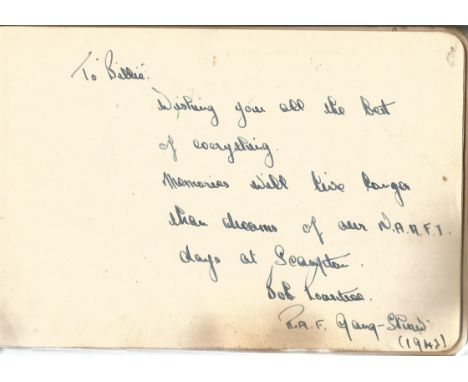 To "Billie".
Wishing you all the best
of everything.
Memories will live longer
than dreams of our N.A.A.F.I.
days at Scampton.
Bob
R.A.F.
(1942)